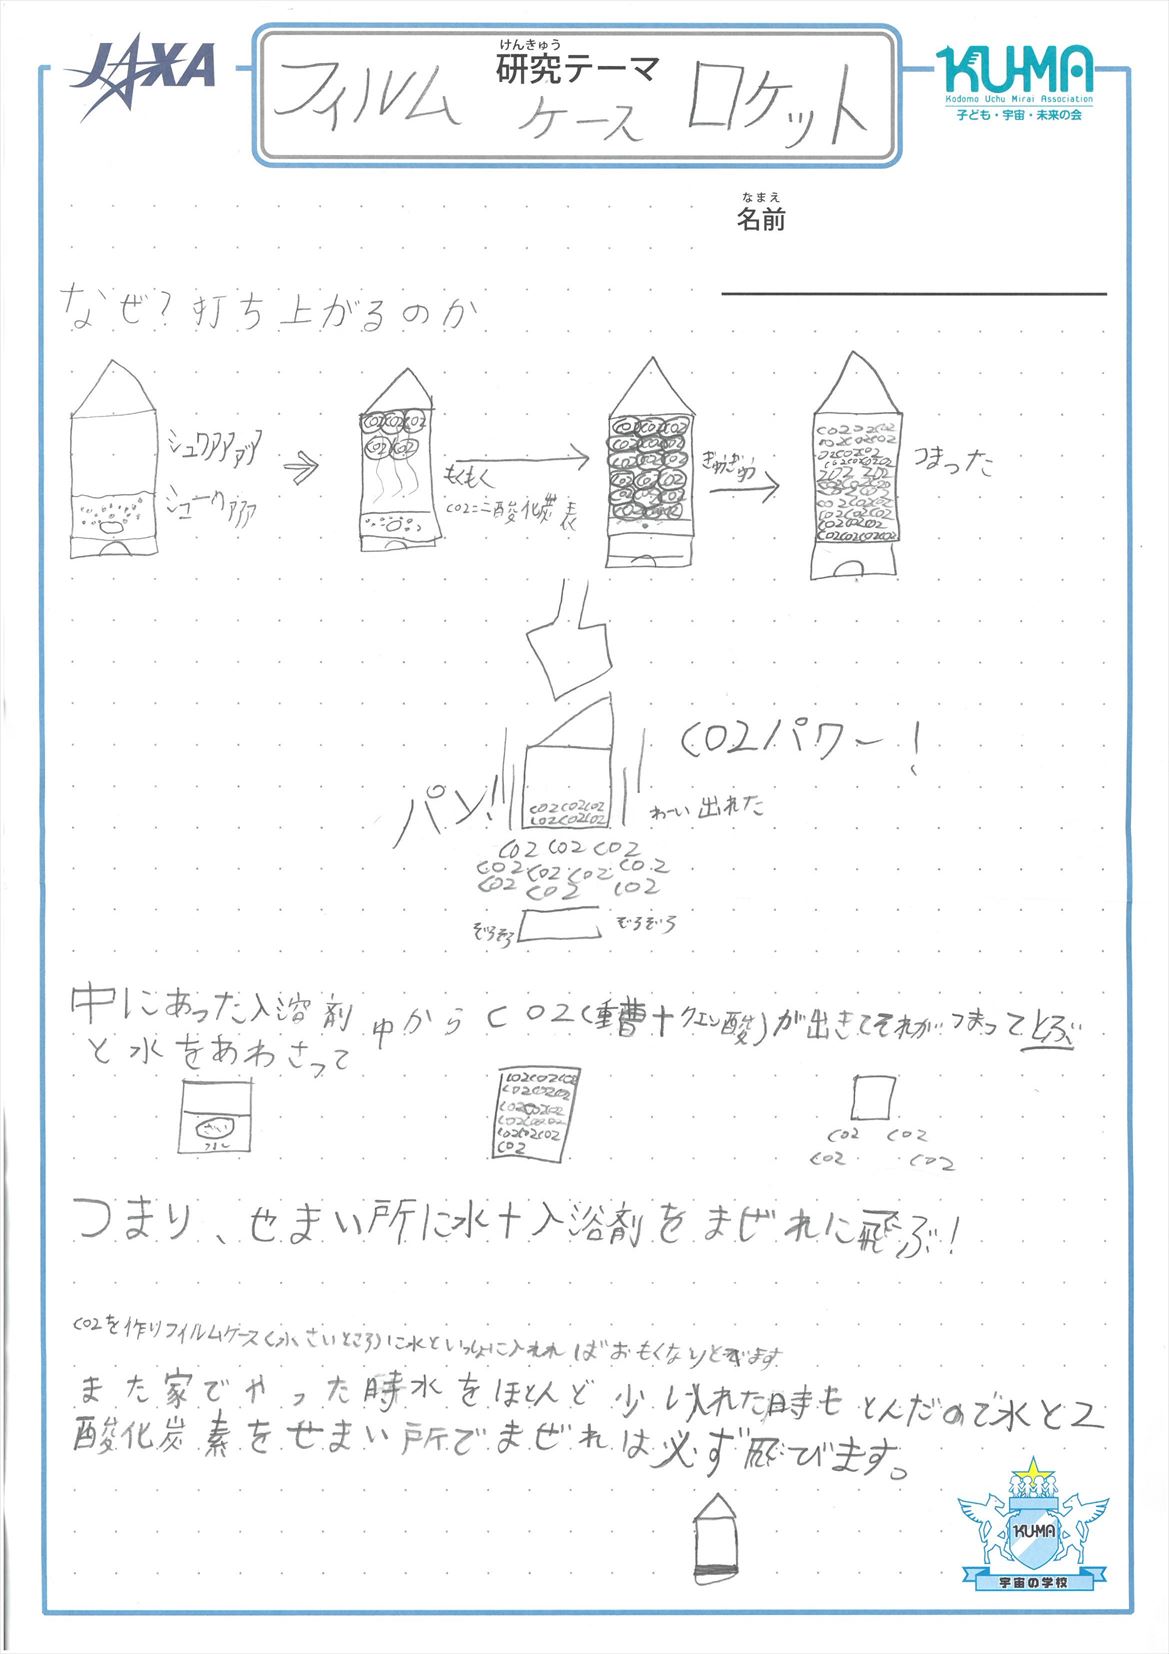 JAXA
けんきゅう
研究テーマ
フィルム
ケース
ロケット
KU-MA
Kodomo Uchu Mirai Association
子ども・宇宙・未来の会
なまえ
名前
なぜ?打ち上がるのか
シュワアアアア
シュークアアア
CO2 CO2 CO2
CO2 CO2
もくもく
CO2=二酸化炭素
ぎゅうぎゅう
つまった
CO2パワー!
パン!
CO2CO2CO2
CO2CO2CO2
わーい出れた
CO2 CO2 CO2
CO2 CO2 CO2 CO2
CO2 CO2 CO2
ぞろぞろ
ぞろぞろ
中にあった入溶剤
と水をあわさって
中からCO2(重曹+クエン酸)が出きてそれがつまってとぶ
CO2CO2CO2
CO2CO2CO2
CO2CO2CO2
CO2CO2CO2
CO2CO2CO2
CO2
CO2 CO2
CO2 CO2
つまり、せまい所に水+入浴剤をまぜれに飛ぶ!
CO2を作りフィルムケース(小さいところ)に水といっしょに入れればおもくなりとびます
また家でやった時水をほとんど少し入れた時もとんだので水と2
酸化炭素をせまい所でまぜれは必ず飛びます。
KU-MA
宇宙の学校